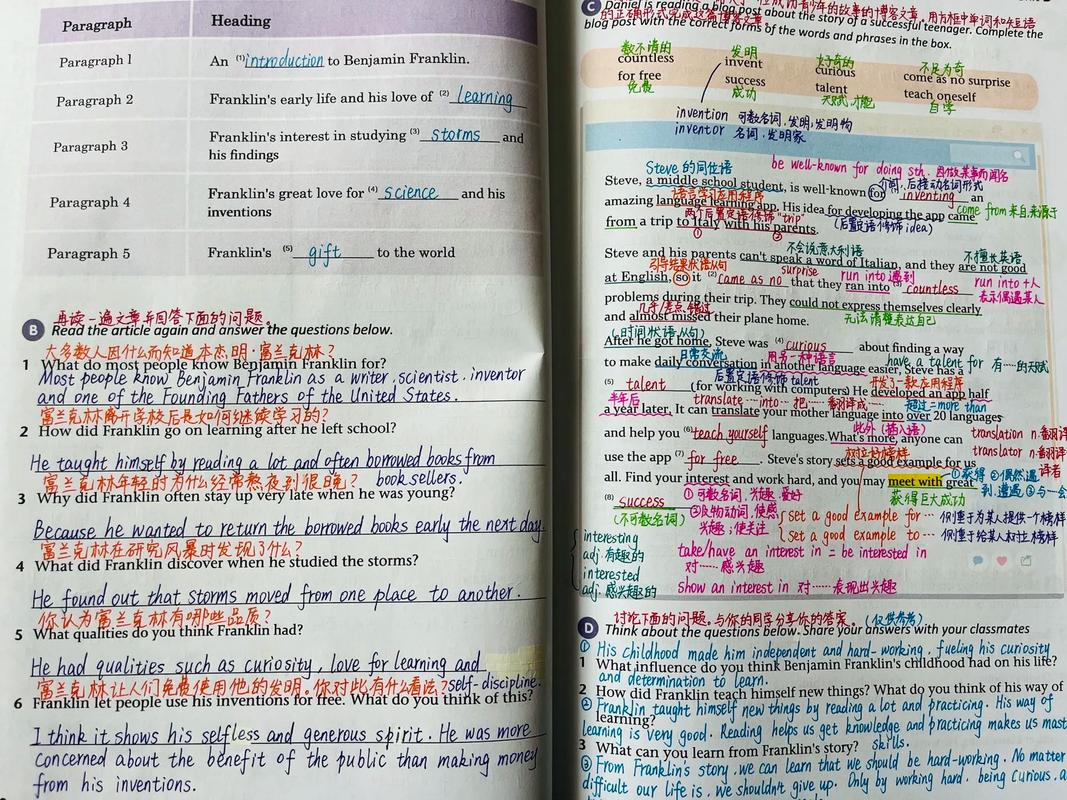 Paragraph Heading
Paragraph 1 An (1) introduction to Benjamin Franklin.
Paragraph 2 Franklin's early life and his love of (2) learning
Paragraph 3 Franklin's interest in studying (3) storms and
his findings
Paragraph 4 Franklin's great love for (4) science and his
inventions
Paragraph 5 Franklin's (5) gift to the world
再读一遍文章并回答下面的问题。
B Read the article again and answer the questions below.
大多数人因什么而知道本杰明·富兰克林?
1 What do most people know Benjamin Franklin for?
Most people know Benjamin Franklin as a writer, scientist, inventor
and one of the Founding Fathers of the United States.
富兰克林离开学校后是如何继续学习的?
2 How did Franklin go on learning after he left school?
He taught himself by reading a lot and often borrowed books from
book sellers.
富兰克林年轻时为什么经常熬夜到很晚?
3 Why did Franklin often stay up very late when he was young?
Because he wanted to return the borrowed books early the next day.
富兰克林在研究风暴时发现了什么?
4 What did Franklin discover when he studied the storms?
He found out that storms moved from one place to another.
你认为富兰克林有哪些品质?
5 What qualities do you think Franklin had?
He had qualities such as curiosity, love for learning and
self-discipline.
富兰克林让人们免费使用他的发明。你对此有什么看法?
6 Franklin let people use his inventions for free. What do you think of this?
I think it shows his selfless and generous spirit. He was more
concerned about the benefit of the public than making money
from his inventions.
C Daniel is reading a blog post about the story of a successful teenager. Complete the
的正确形式完成这篇博客文章
blog post with the correct forms of the words and phrases in the box.
数不清的 发明 好奇的 不足为奇
countless invent curious come as no surprise
for free success talent teach oneself
免费 成功 天赋,才能 自学
invention 可数名词,发明;发明物
inventor 名词,发明家
Steve 的同位语 be well-known for doing sth. 因做某事而闻名
Steve, a middle school student, is well-known for (1) inventing an
介词,后接动名词形式
语言学习应用程序
amazing language learning app. His idea for developing the app came
come from 来自,来源于
两个后置定语修饰"trip" (后置定语修饰idea)
from a trip to Italy with his parents.
① ②
不会说意大利语 不擅长英语
Steve and his parents can't speak a word of Italian, and they are not good
引导结果状语从句 surprise run into 遇到 run into + 人
at English, so it (2) came as no that they ran into (3) countless
表示偶遇某人
problems during their trip. They could not express themselves clearly
几乎/差点 错过 无法清楚表达自己
and almost missed their plane home.
(时间状语从句)
After he got home, Steve was (4) curious about finding a way
日常交流 用另一种语言 have a talent for 有…的天赋
to make daily conversation in another language easier. Steve has a
后置定语修饰 talent 开发了一款应用程序
(5) talent (for working with computers) He developed an app half
半年后 translate … into … 把……翻译成… 超过 = more than
a year later. It can translate your mother language into over 20 languages
此外(插入语) translation n.
and help you (6) teach yourself languages. What's more, anyone can
translator n.
树立好榜样
use the app (7) for free. Steve's story sets a good example for us
① 获得 ② 偶然遇到,遭遇
all. Find your interest and work hard, and you may meet with great
① 可数名词,兴趣,爱好 获得巨大成功
(8) success
(不可数名词) ② 及物动词,使感兴趣;使关注
set a good example for … 侧重于为某人提供一个榜样
set a good example to … 侧重于给某人树立榜样
interesting
adj 有趣的
interested
adj 感兴趣的
take/have an interest in = be interested in
对……感兴趣
show an interest in 对……表现出兴趣
讨论下面的问题。与你的同学分享你的答案。(仅供参考)
D Think about the questions below. Share your answers with your classmates
① His childhood made him independent and hard-working, fueling his curiosity
1 What influence do you think Benjamin Franklin's childhood had on his life?
and determination to learn.
2 How did Franklin teach himself new things? What do you think of his way of
② Franklin taught himself new things by reading a lot and practicing. His way of
learning?
learning is very good. Reading helps us get knowledge and practicing makes us
skills.
3 What can you learn from Franklin's story?
③ From Franklin's story, we can learn that we should be hard-working. No matter
difficult our life is, we shouldn't give up. Only by working hard, being curious,